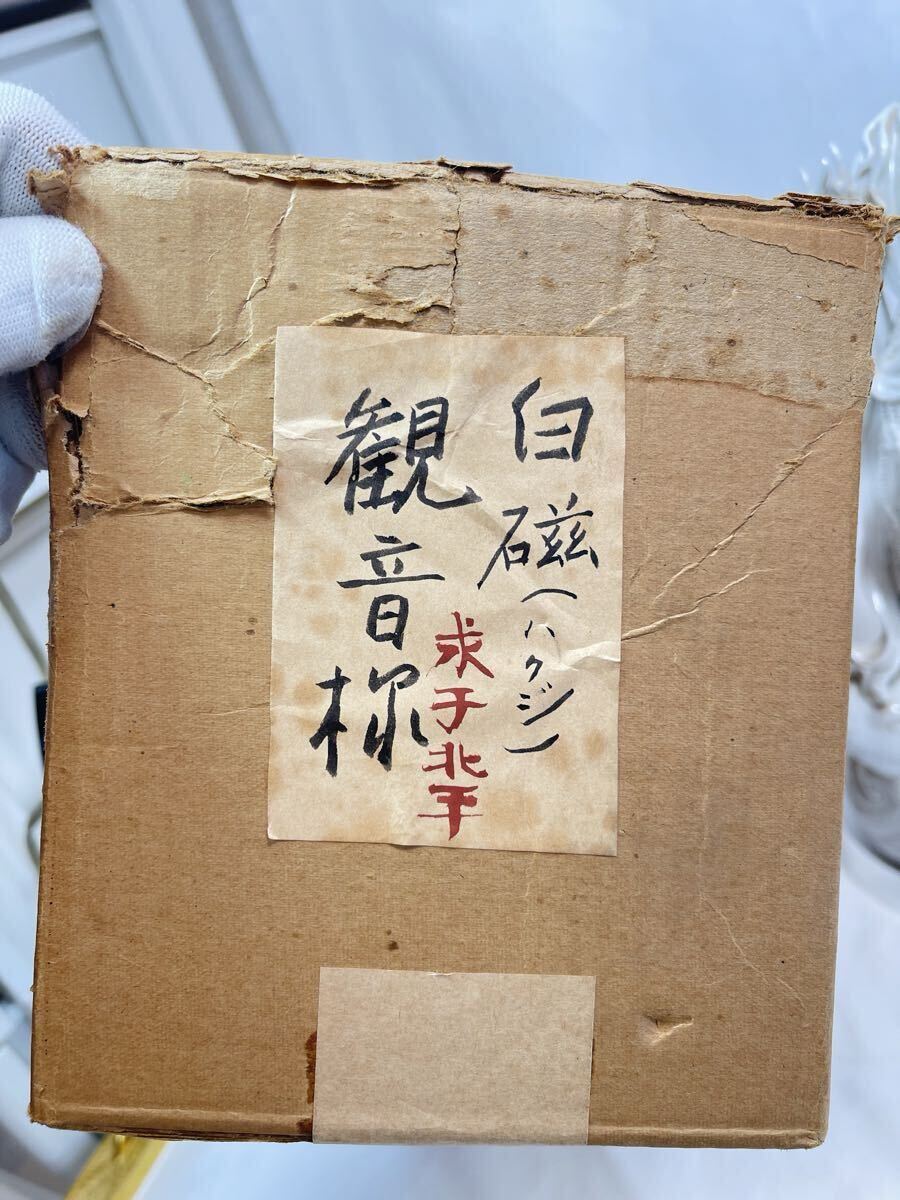 白磁(ハクジ)
求于北平
観音様